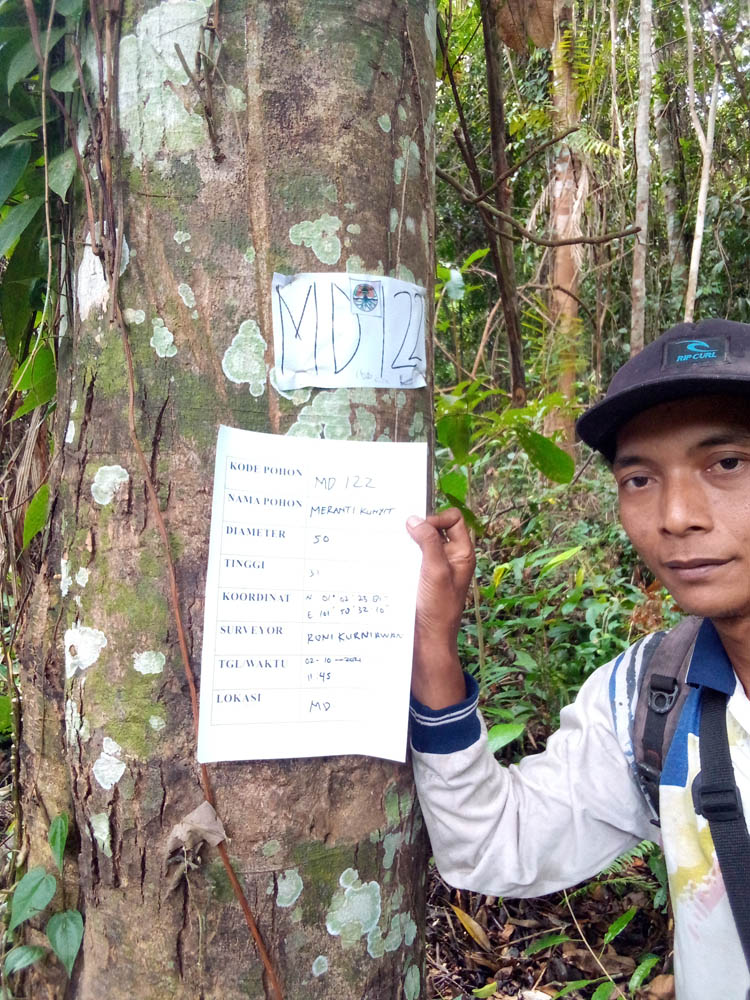 MD 122
RIP CURL
KODE POHON MD 122
NAMA POHON MERANTI KUNYIT
DIAMETER 50
TINGGI 31
KOORDINAT N 01° 02' 23
E 101° 50' 32 10"
SURVEYOR RONI KURNIAWAN
TGL/WAKTU 02-10-2021
11:45
LOKASI MD